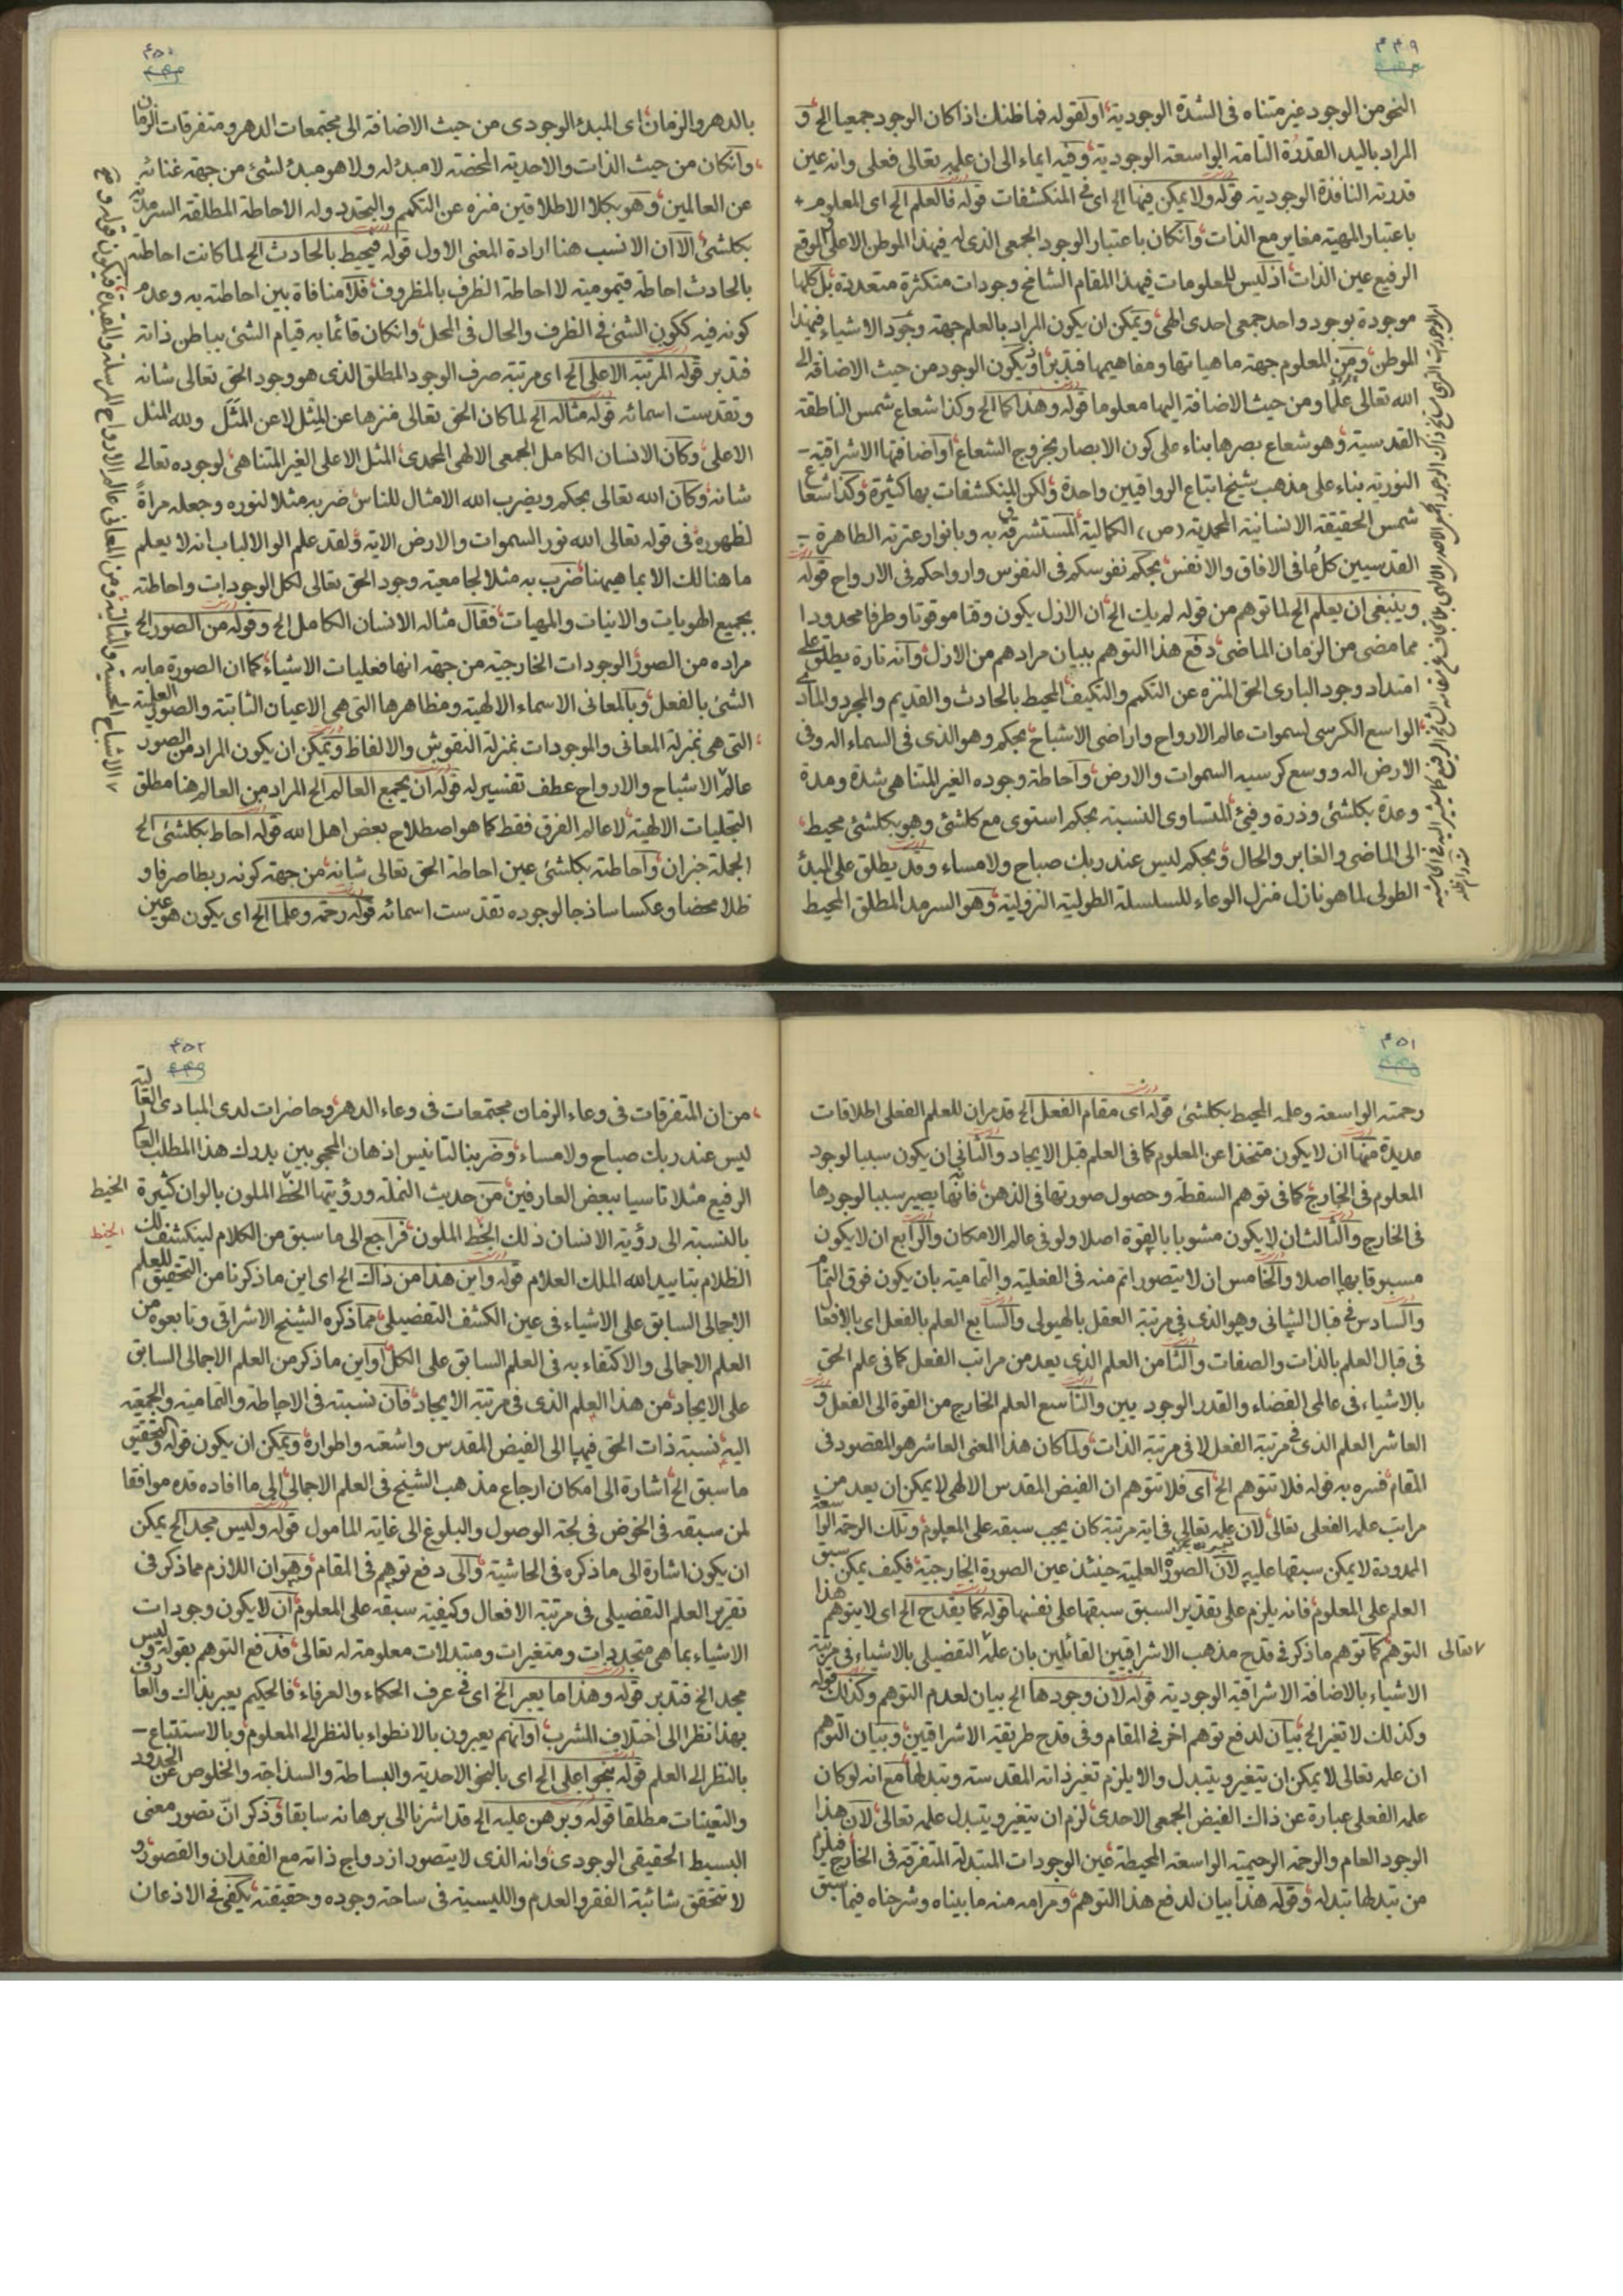 ۴۴۹
النحو من الوجود غیر متناه فی الشدة الوجودیة او لقوله فما ظنك اذا كان الوجود جمعیا الخ و
المراد بالید القدرة التامة الواسعة الوجودیة وفیه ایماء الی ان علمه تعالی فعلی وانه عین
قدرته النافذة الوجودیة قوله ولا یمكن فیها الخ ای فی المنكشفات قوله فالعلم الخ ای المعلوم
باعتبار المهیة مغایر مع الذات وانكان باعتبار الوجود الجمعی الذی له فیهذا الموطن الاعلی والموقع
الرفیع عین الذات اذ لیس للمعلومات فیهذا المقام الشامخ وجودات متكثرة متعددة بل كلها
موجودة بوجود واحد جمعی احدی الهی ویمكن ان یكون المراد بالعلم جهة وجود الاشیاء فیهذا
الموطن ومن المعلوم جهة ماهیاتها ومفاهیمها فتدبر او یكون الوجود من حیث الاضافة الی
الله تعالی علما ومن حیث الاضافة الیها معلوما قوله وهذا كما الخ وكذا شعاع شمس الناطقة
القدسیة وهو شعاع بصرها بناء علی كون الابصار بخروج الشعاع او اضافتها الاشراقیة
النوریة بناء علی مذهب شیخ اتباع الرواقیین واحدة ولكن المنكشفات بها كثیرة وكذا شعاع
شمس الحقیقة الانسانیة المحمدیة (ص) الكمالیة المستشرقة به وبانوار عترته الطاهرة
القدسیین كل ما فی الافاق والانفس بحكم نفوسكم فی النفوس وارواحكم فی الارواح قوله
وینبغی ان یعلم الخ لما توهم من قوله لم یك الخ ان الازل یكون وقتا موقوتا وطرفا محدودا
مما مضی من الزمان الماضی دفع هذا التوهم ببیان مرادهم من الازل وانه تارة یطلق علی
امتداد وجود الباری الحق المنزه عن التكمم والتكیف المحیط بالحادث والقدیم والمجرد والمادی
الواسع الكرسی لسموات عالم الارواح واراضی الاشباح بحكم وهو الذی فی السماء اله وفی
الارض اله ووسع كرسیه السموات والارض واحاطة وجوده الغیر المتناهی شدة ومدة
وعدة بكلشئ وذرة وفیئ المتساوی النسبة بحكم استوی مع كلشئ وهو بكلشئ محیط
الی الماضی والغابر والحال وبحكم لیس عند ربك صباح ولا مساء وقد یطلق علی المبدئ
الطولی لما هو نازل منزل الوعاء للسلسلة الطولیة النزولیة وهو السرمد المطلق المحیط
۴۵۰
بالدهر والزمان ای المبدئ الوجودی من حیث الاضافة الی مجتمعات الدهر ومتفرقات الزمان
وانكان من حیث الذات والاحدیة المحضة لا مبدئ له ولا هو مبدئ لشئ من جهة غنائه
عن العالمین وهو بكلا الاطلاقین منزه عن التكمم والتجدد وله الاحاطة المطلقة السرمدیة
بكلشئ الا ان الانسب هنا ارادة المعنی الاول قوله فیحیط بالحادث الخ لما كانت احاطته
بالحادث احاطة قیومیة لا احاطة الظرف بالمظروف فلا منافاة بین احاطته به وعدم
كونه فیه ككون الشئ فی الظرف والحال فی المحل وانكان قائما به قیام الشئ بباطن ذاته
فتدبر قوله المرتبة الاعلی الخ ای مرتبة صرف الوجود المطلق الذی هو وجود الحق تعالی شانه
وتقدست اسمائه قوله مثاله الخ لما كان الحق تعالی منزها عن المثل لا عن المثل ولله المثل
الاعلی وكان الانسان الكامل الجمعی الالهی المحمدی المثل الاعلی الغیر المتناهی لوجوده تعالی
شانه وكان الله تعالی بحكم ویضرب الله الامثال للناس ضربه مثلا لنوره وجعله مراة
لظهوره فی قوله تعالی الله نور السموات والارض الایة ولقد علم الوا الالباب انه لا یعلم
ما هنالك الا بما هیهنا ضرب به مثلا لجامعیة وجود الحق تعالی لكل الوجودات واحاطته
بجمیع الهویات والانیات والمهیات فقال مثاله الانسان الكامل الخ وقوله من الصور الخ
مراده من الصور الوجودات الخارجیة من جهة انها فعلیات الاشیاء كما ان الصورة ما به
الشئ بالفعل وبالمعانی الاسماء الالهیة ومظاهرها التی هی الاعیان الثابتة والصور العلمیة
التی هی بمنزلة المعانی والموجودات بمنزلة النقوش والالفاظ ویمكن ان یكون المراد من الصور
عالم الاشباح والارواح عطف تفسیر له قوله ان یجمع العالم الخ المراد من العالم هنا مطلق
التجلیات الالهیة لا عالم الفرق فقط كما هو اصطلاح بعض اهل الله قوله احاط بكلشئ الخ
الجملة خبر ان واحاطته بكلشئ عین احاطة الحق تعالی شانه من جهة كونه ربطا صرفا و
ظلا محضا وعكسا ساذجا لوجوده تقدست اسمائه قوله رحمة وعلما الخ ای یكون هو عین
۴۵۱
رحمته الواسعة وعلمه المحیط بكلشئ قوله ای مقام الفعل الخ قد مر ان للعلم الفعلی اطلاقات
عدیدة منها ان لا یكون متخذا عن المعلوم كما فی العلم قبل الایجاد والثانی ان یكون سببا لوجود
المعلوم فی الخارج كما فی توهم السقطة وحصول صورتها فی الذهن فانها یصیر سببا لوجودها
فی الخارج والثالث ان لا یكون مشوبا بالقوة اصلا ولو فی عالم الامكان والرابع ان لا یكون
مسبوقا بها اصلا والخامس ان لا یتصور اتم منه فی الفعلیة والتمامیة بان یكون فوق التمام
والسادس فی قبال الشانی وهو الذی فی مرتبة العقل بالهیولی والسابع العلم بالفعل ای بالافعال
فی قبال العلم بالذات والصفات والثامن العلم الذی یعد من مراتب الفعل كما فی علم الحق
بالاشیاء فی عالمی القضاء والقدر الوجودیین والتاسع العلم الخارج من القوة الی الفعل و
العاشر العلم الذی فی مرتبة الفعل لا فی مرتبة الذات ولما كان هذا المعنی العاشر هو المقصود فی
المقام فسره به قوله فلا تتوهم الخ ای فلا تتوهم ان الفیض المقدس الالهی لا یمكن ان یعد من
مراتب علمه الفعلی تعالی لان علمه تعالی فی ایة مرتبة كان یجب سبقه علی المعلوم وتلك الرحمة الواسعة
الممدودة لا یمكن سبقها علیه لان الصورة العلمیة حینئذ عین الصورة الخارجیة فكیف یمكن سبق
العلم علی المعلوم فانه یلزم علی تقدیر السبق سبقها علی نفسها قوله كما یقدح الخ ای لا یتوهم هذا
التوهم كما توهم ما ذكر فی قدح مذهب الاشراقیین القائلین بان علمه التفصیلی بالاشیاء فی مرتبة
تعالی
الاشیاء بالاضافة الاشراقیة الوجودیة قوله لان وجودها الخ بیان لعدم التوهم وكذلك قوله
وكذلك لا تغیر الخ بیان لدفع توهم اخر فی المقام وفی قدح طریقة الاشراقیین وبیان التوهم
ان علمه تعالی لا یمكن ان یتغیر ویتبدل والا یلزم تغیر ذاته المقدسة وتبدلها مع انه لو كان
علمه الفعلی عبارة عن ذاك الفیض الجمعی الاحدی لزم ان یتغیر ویتبدل علمه تعالی لان هذا
الوجود العام والرحمة الرحیمیة الواسعة المحیطة عین الوجودات المتبدلة المتفرقة فی الخارج فیلزم
من تبدلها تبدله وقوله هذا بیان لدفع هذا التوهم ومرامه منه ما بیناه وشرحناه فیما سبق
۴۵۲
من ان المتفرقات فی وعاء الزمان مجتمعات فی وعاء الدهر وحاضرات لدی المبادی العالیة
لیس عند ربك صباح ولا مساء وضربنا لتانیس اذهان المحجوبین بدرك هذا المطلب العالی
الرفیع مثلا تاسیا ببعض العارفین من حدیث النملة ورؤیتها الخیط الملون بالوان كثیرة
الخیط
بالنسبة الی رؤیة الانسان ذلك الخیط الملون فراجع الی ما سبق من الكلام لینكشف لك
الخیط
الظلام بتایید الله الملك العلام قوله واین هذا من ذاك الخ ای این ما ذكرنا من التحقیق للعلم
الاجمالی السابق علی الاشیاء فی عین الكشف التفصیلی مما ذكره الشیخ الاشراقی وتابعوه من
العلم الاجمالی والاكتفاء به فی العلم السابق علی الكل او این ما ذكر من العلم الاجمالی السابق
علی الایجاد من هذا العلم الذی فی مرتبة الایجاد فان نسبته فی الاحاطة والتمامیة والجمعیة
الیه نسبة ذات الحق فیها الی الفیض المقدس واشعته واطواره ویمكن ان یكون قوله والتحقیق
ما سبق الخ اشارة الی امكان ارجاع مذهب الشیخ فی العلم الاجمالی الی ما افاده قده موافقا
لمن سبقه فی الخوض فی لجة الوصول والبلوغ الی غایة المامول قوله ولیس مجد الخ یمكن
ان یكون اشارة الی ما ذكره فی الحاشیة والی دفع توهم فی المقام وهو ان اللازم مما ذكر فی
تقریر العلم التفصیلی فی مرتبة الافعال وكیفیة سبقه علی المعلوم ان لا یكون وجودات
الاشیاء بما هی متجددات ومتغیرات ومتبدلات معلومة له تعالی فدفع التوهم بقوله ولیس
مجد الخ فتدبر قوله وهذا ما یعبر الخ ای فی عرف الحكماء والعرفاء فالحكیم یعبر بذاك والعارف
بهذا نظرا الی اختلاف المشرب او انهم یعبرون بالانطواء بالنظر الی المعلوم وبالاستتباع
بالنظر الی العلم قوله بنحو اعلی الخ ای بالنحو الاحدیة والبساطة والسذاجة والخلوص عن الحدود
والتعینات مطلقا قوله وبرهن علیه الخ قد اشرنا الی برهانه سابقا وذكر ان تصور معنی
البسیط الحقیقی الوجودی وانه الذی لا یتصور ازدواج ذاته مع الفقدان والقصور و
لا تتحقق شائبة الفقر والعدم واللیسیة فی ساحة وجوده وحقیقته یكفی فی الاذعان